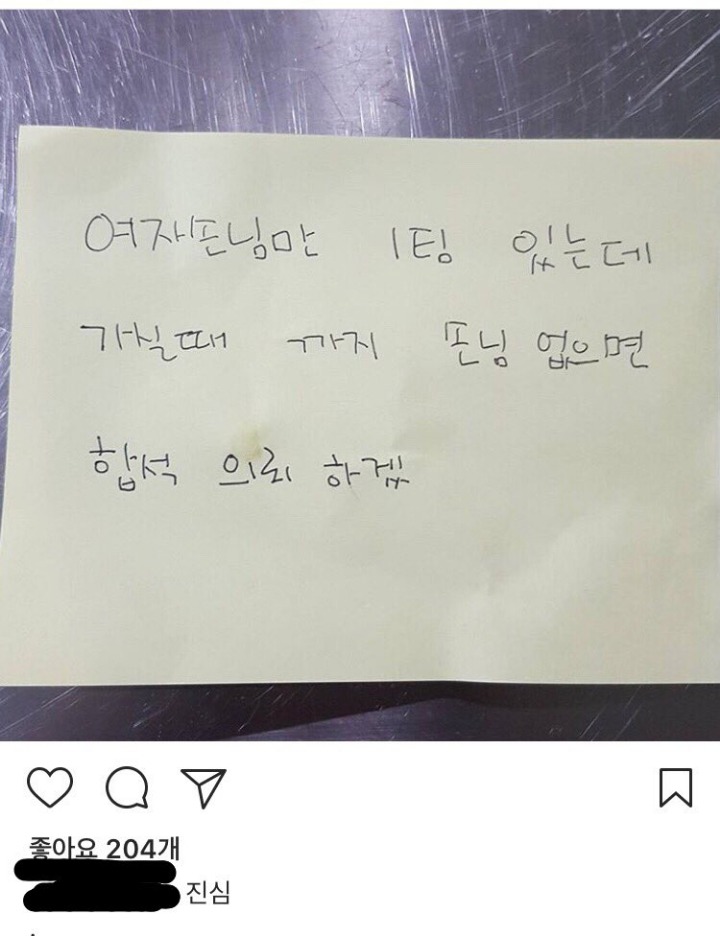 여자손님만 1팀 있는데
가실때 까지 손님 없으면
합석 의뢰 하겠
좋아요 204개
진심